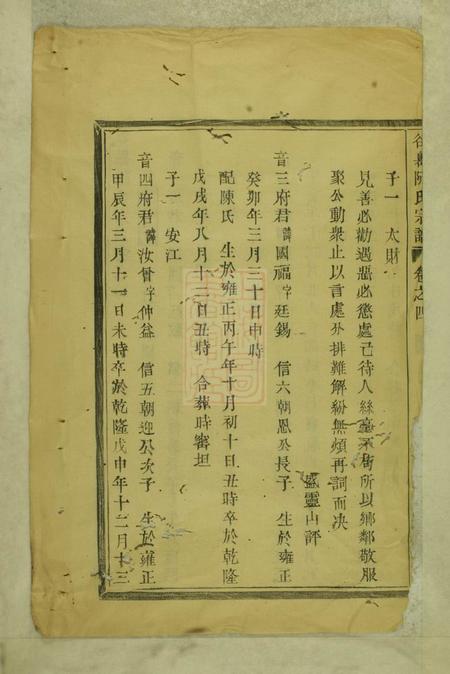 陳氏宗譜 卷之四
子一 太財
見善必勸遇惡必懲處己待人絲毫不苟所以鄉鄰敬服
聚公動衆止以言處外排難解紛無煩再詞而决
盛靈山評
音三府君諱國福字廷錫 信六朝恩公長子 生於雍正
癸卯年三月三十日申時
配陳氏 生於雍正丙午年十月初十日丑時卒於乾隆
戊戌年八月十二日丑時 合葬時審坦
子一 安江
音四府君諱汝曾字仲益 信五朝迎公次子 生於雍正
甲辰年三月十一日未時卒於乾隆戊申年十二月十三